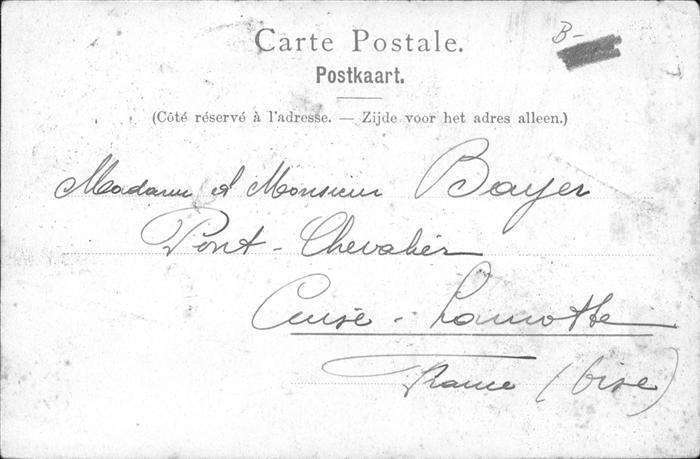 Carte Postale.
B-
Postkaart.
(Côté réservé à l'adresse. — Zijde voor het adres alleen.)
Madame et Monsieur Bayer
Pont-Chevalier
Cuise-Lamotte
France (Oise)